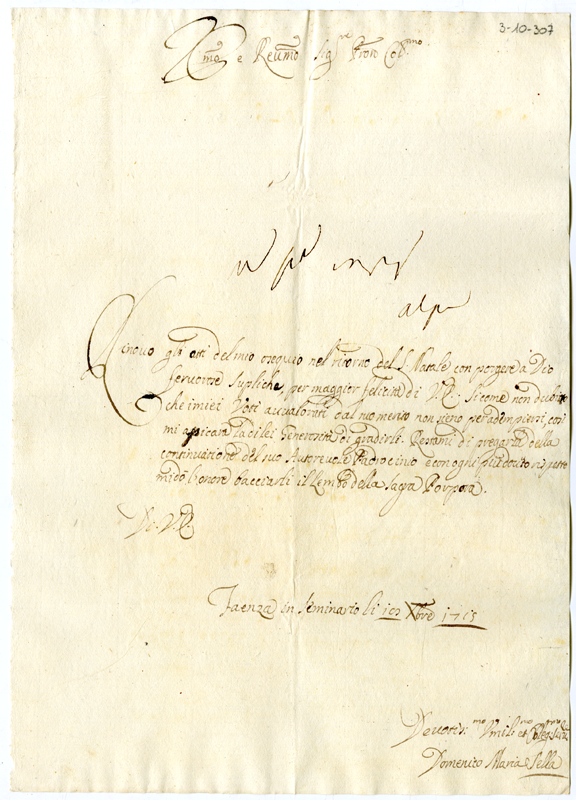 3-10-307
Emo e Revmo Sigre Pron Colmo
Rinovo gli atti del mio osequio nel ritorno del S. Natale con porgere à Dio
fervorose Supliche, per maggior felicità di V.E. Sicome non dubito
che i miei Voti avvalorati dal suo merito non sieno per adempiersi, così
mi assicura la di lei Generosità di gradirli. Restami di pregarla della
continuatione del suo Autorevole Patrocinio e con ogni più divoto rispetto
mi dò l'onore bacciarli il Lembo della Sacra Porpora.
Di V.E.
Faenza in Seminario li 10 Xbre 1715
Devotismo Umilmo et Servre
Domenico Maria Sella